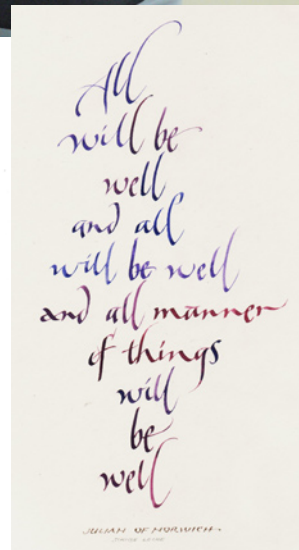 All
will be
well
and all
will be well
and all manner
of things
will
be
well
JULIAN OF NORWICH.